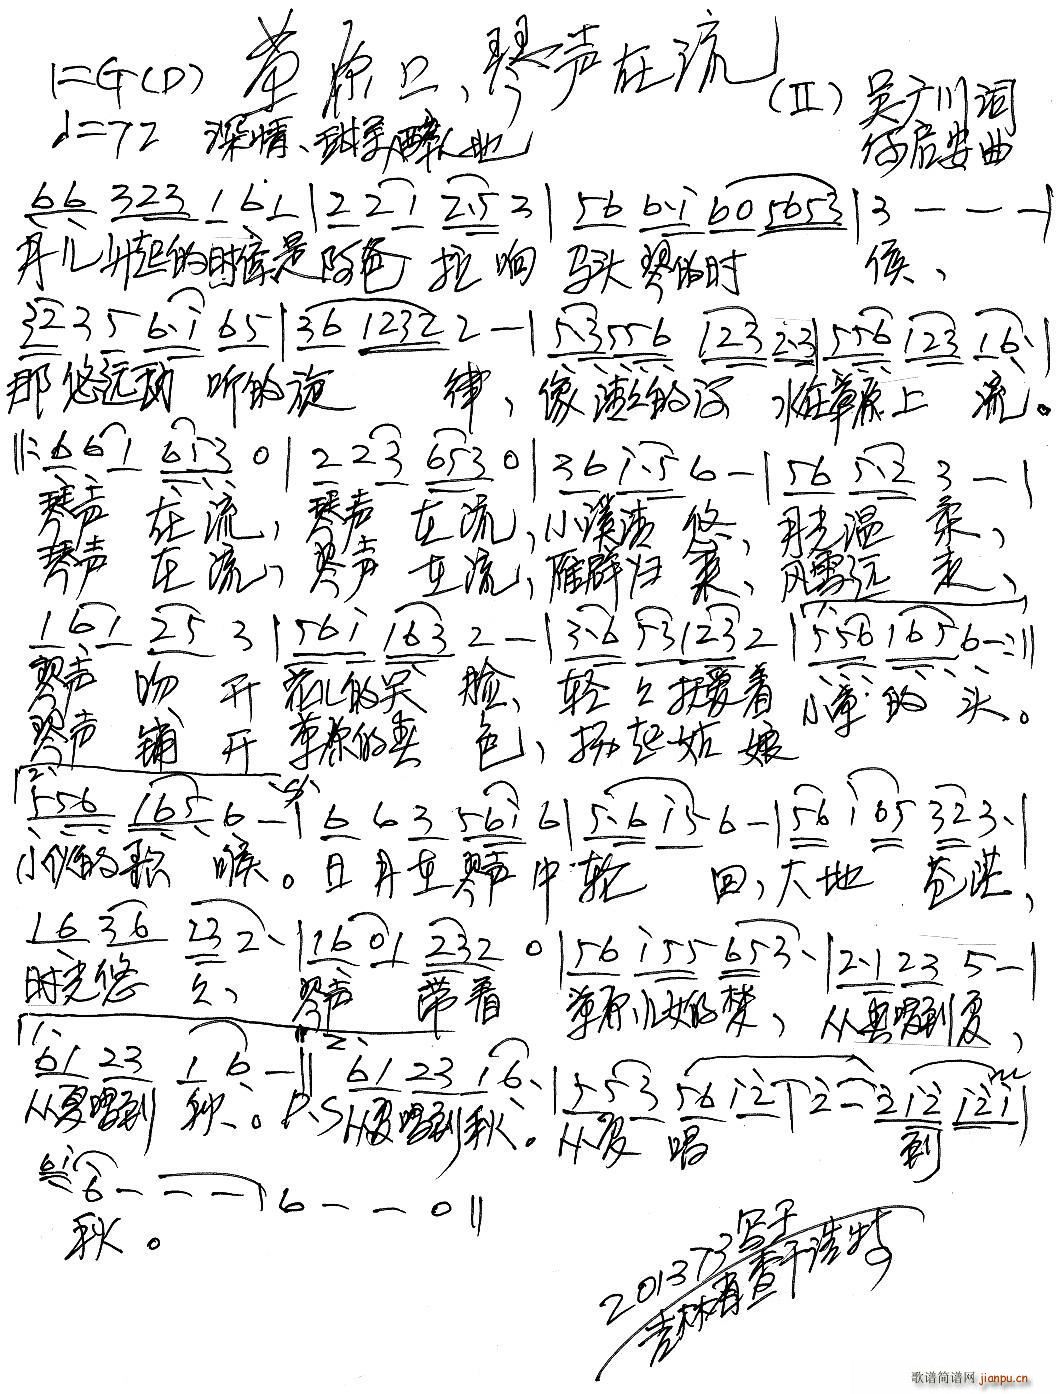 1=G(D) 草原上,琴声在流
(II) 吴广川词
♩=72 深情、甜美、醉人地
启安曲
66 323 1 61 | 2 21 2·5 3 | 56 6·i 60 5653 | 3 - - - |
月儿升起的时候是阿爸 拉响 马头琴的时 候、
32 35 6·i 65 | 36 1232 2 - | 5·3556 123 2·3 | 556 123 16· |
那悠远动听的旋 律、像清清的河水在草原上 流。
||: 6 61 653 0 | 2 23 653 0 | 36 i·5 6 - | 56 5·2 3 - - |
琴声 在流,琴声 在流,小溪清 悠,月光温 柔,
琴声 在流,琴声 在流,雁群归 来,风雪远 走,
1 61 25 3 | 561 163 2 - | 3·6 53123 2 | 556 165 6 - :||
琴声 吻 开 花儿的笑 脸、轻轻抚爱着 小草的 头。
琴声 铺 开 草原的春 色,扬起姑 娘
2·
556 165 6 - | 6 6 3 56i 6 | 5·6 i5 6 - | 56 i 65 323· |
小伙的歌 喉。日月在琴声中轮 回,大地 苍茫,
16 36 23 2· | 16 01 232 0 | 56 i55 653· | 2·123 5 - |
时光悠 久、琴声 带着 草原儿女的梦, 从春唱到夏,
61 23 1 6 - :|| 2· 61 23 i6· | 553 56 i2 | 2 - 2i2 i2i |
从夏唱到 秋、。D.S从夏唱到秋。从夏 唱 到
6i 6 - - - | 6 - - 0 ||
秋。
201373写于
吉林省查干浩特
歌谱简谱网 jianpu.cn